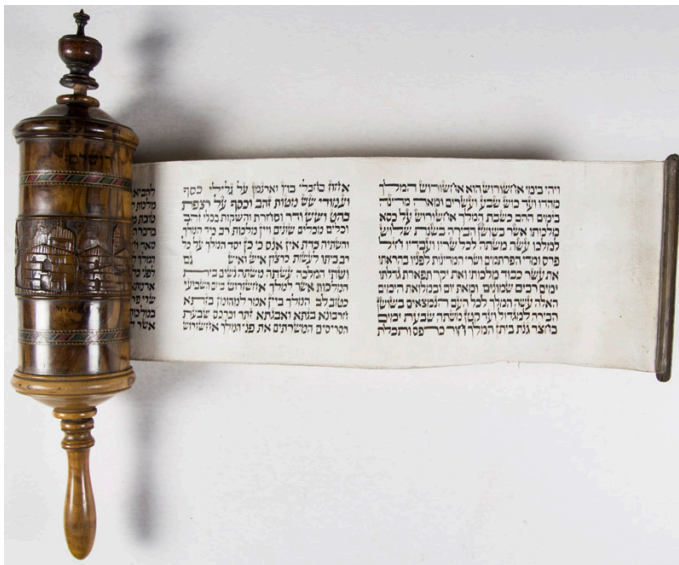 ויהי בימי אחשורוש הוא אחשורוש המלך
מהדו ועד כוש שבע ועשרים ומאה מדינה
בימים ההם כשבת המלך אחשורוש על כסא
מלכותו אשר בשושן הבירה בשנת שלוש
למלכו עשה משתה לכל שריו ועבדיו חיל
פרס ומדי הפרתמים ושרי המדינות לפניו בהראתו
את עשר כבוד מלכותו ואת יקר תפארת גדולתו
ימים רבים שמונים ומאת יום ובמלואת הימים
האלה עשה המלך לכל העם הנמצאים בשושן
הבירה למגדול ועד קטן משתה שבעת ימים
בחצר גנת ביתן המלך חור כרפס ותכלת
אחוז בחבלי בוץ וארגמן על גלילי כסף
ועמודי שש מטות זהב וכסף על רצפת
בהט ושש ודר וסחרת והשקות בכלי זהב
וכלים מכלים שונים ויין מלכות רב כיד המלך
והשתיה כדת אין אנס כי כן יסד המלך על כל
רב ביתו לעשות כרצון איש ואיש גם
ושתי המלכה עשתה משתה נשים בית
המלכות אשר למלך אחשורוש ביום השביעי
כטוב לב המלך ביין אמר למהומן בזתא
חרבונא בגתא ואבגתא זתר וכרכס שבעת
הסריסים המשרתים את פני המלך אחשורוש